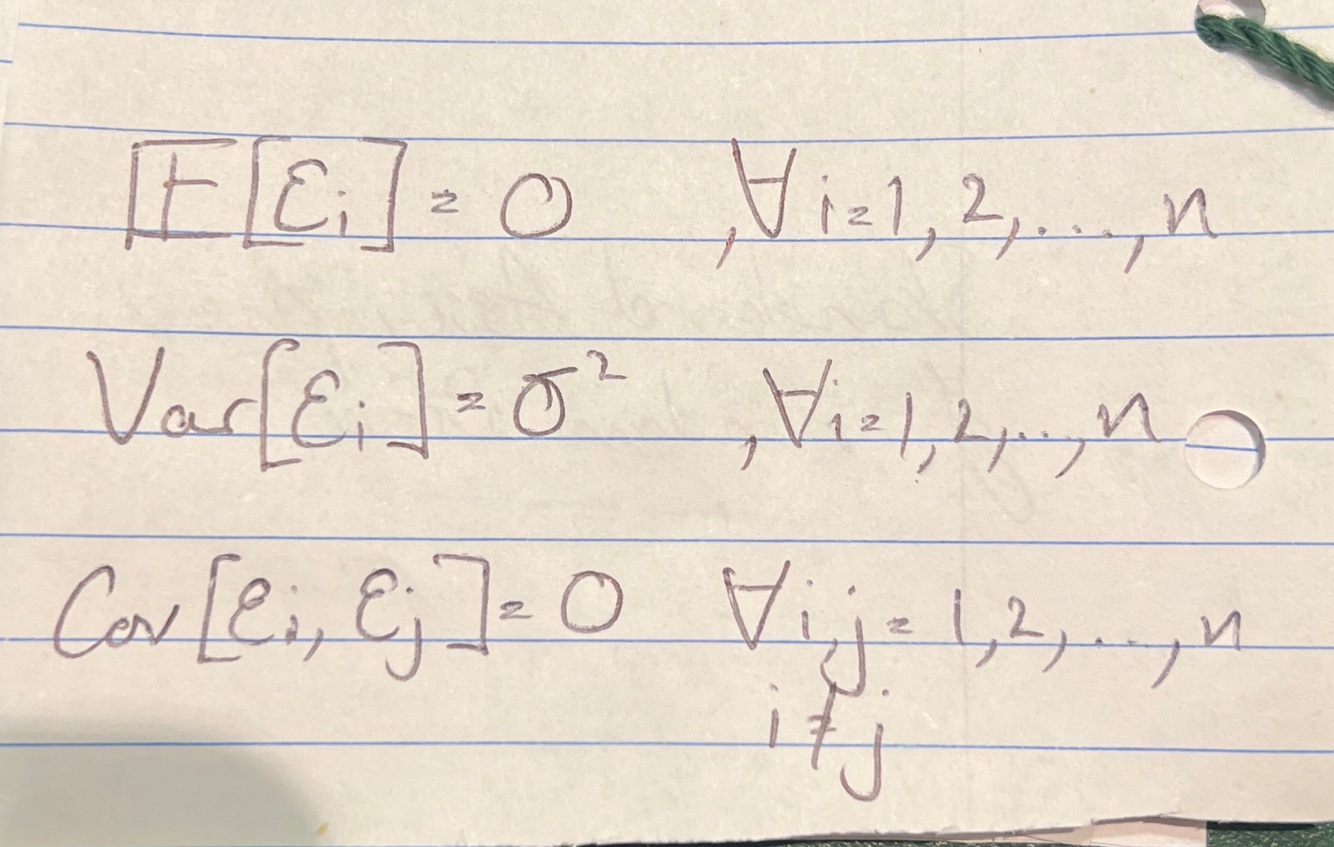 𝔼[εᵢ] = 0 , ∀ i = 1, 2, ..., n
Var[εᵢ] = σ² , ∀ i = 1, 2, ..., n
Cov[εᵢ, εⱼ] = 0 ∀ i, j = 1, 2, ..., n
i ≠ j